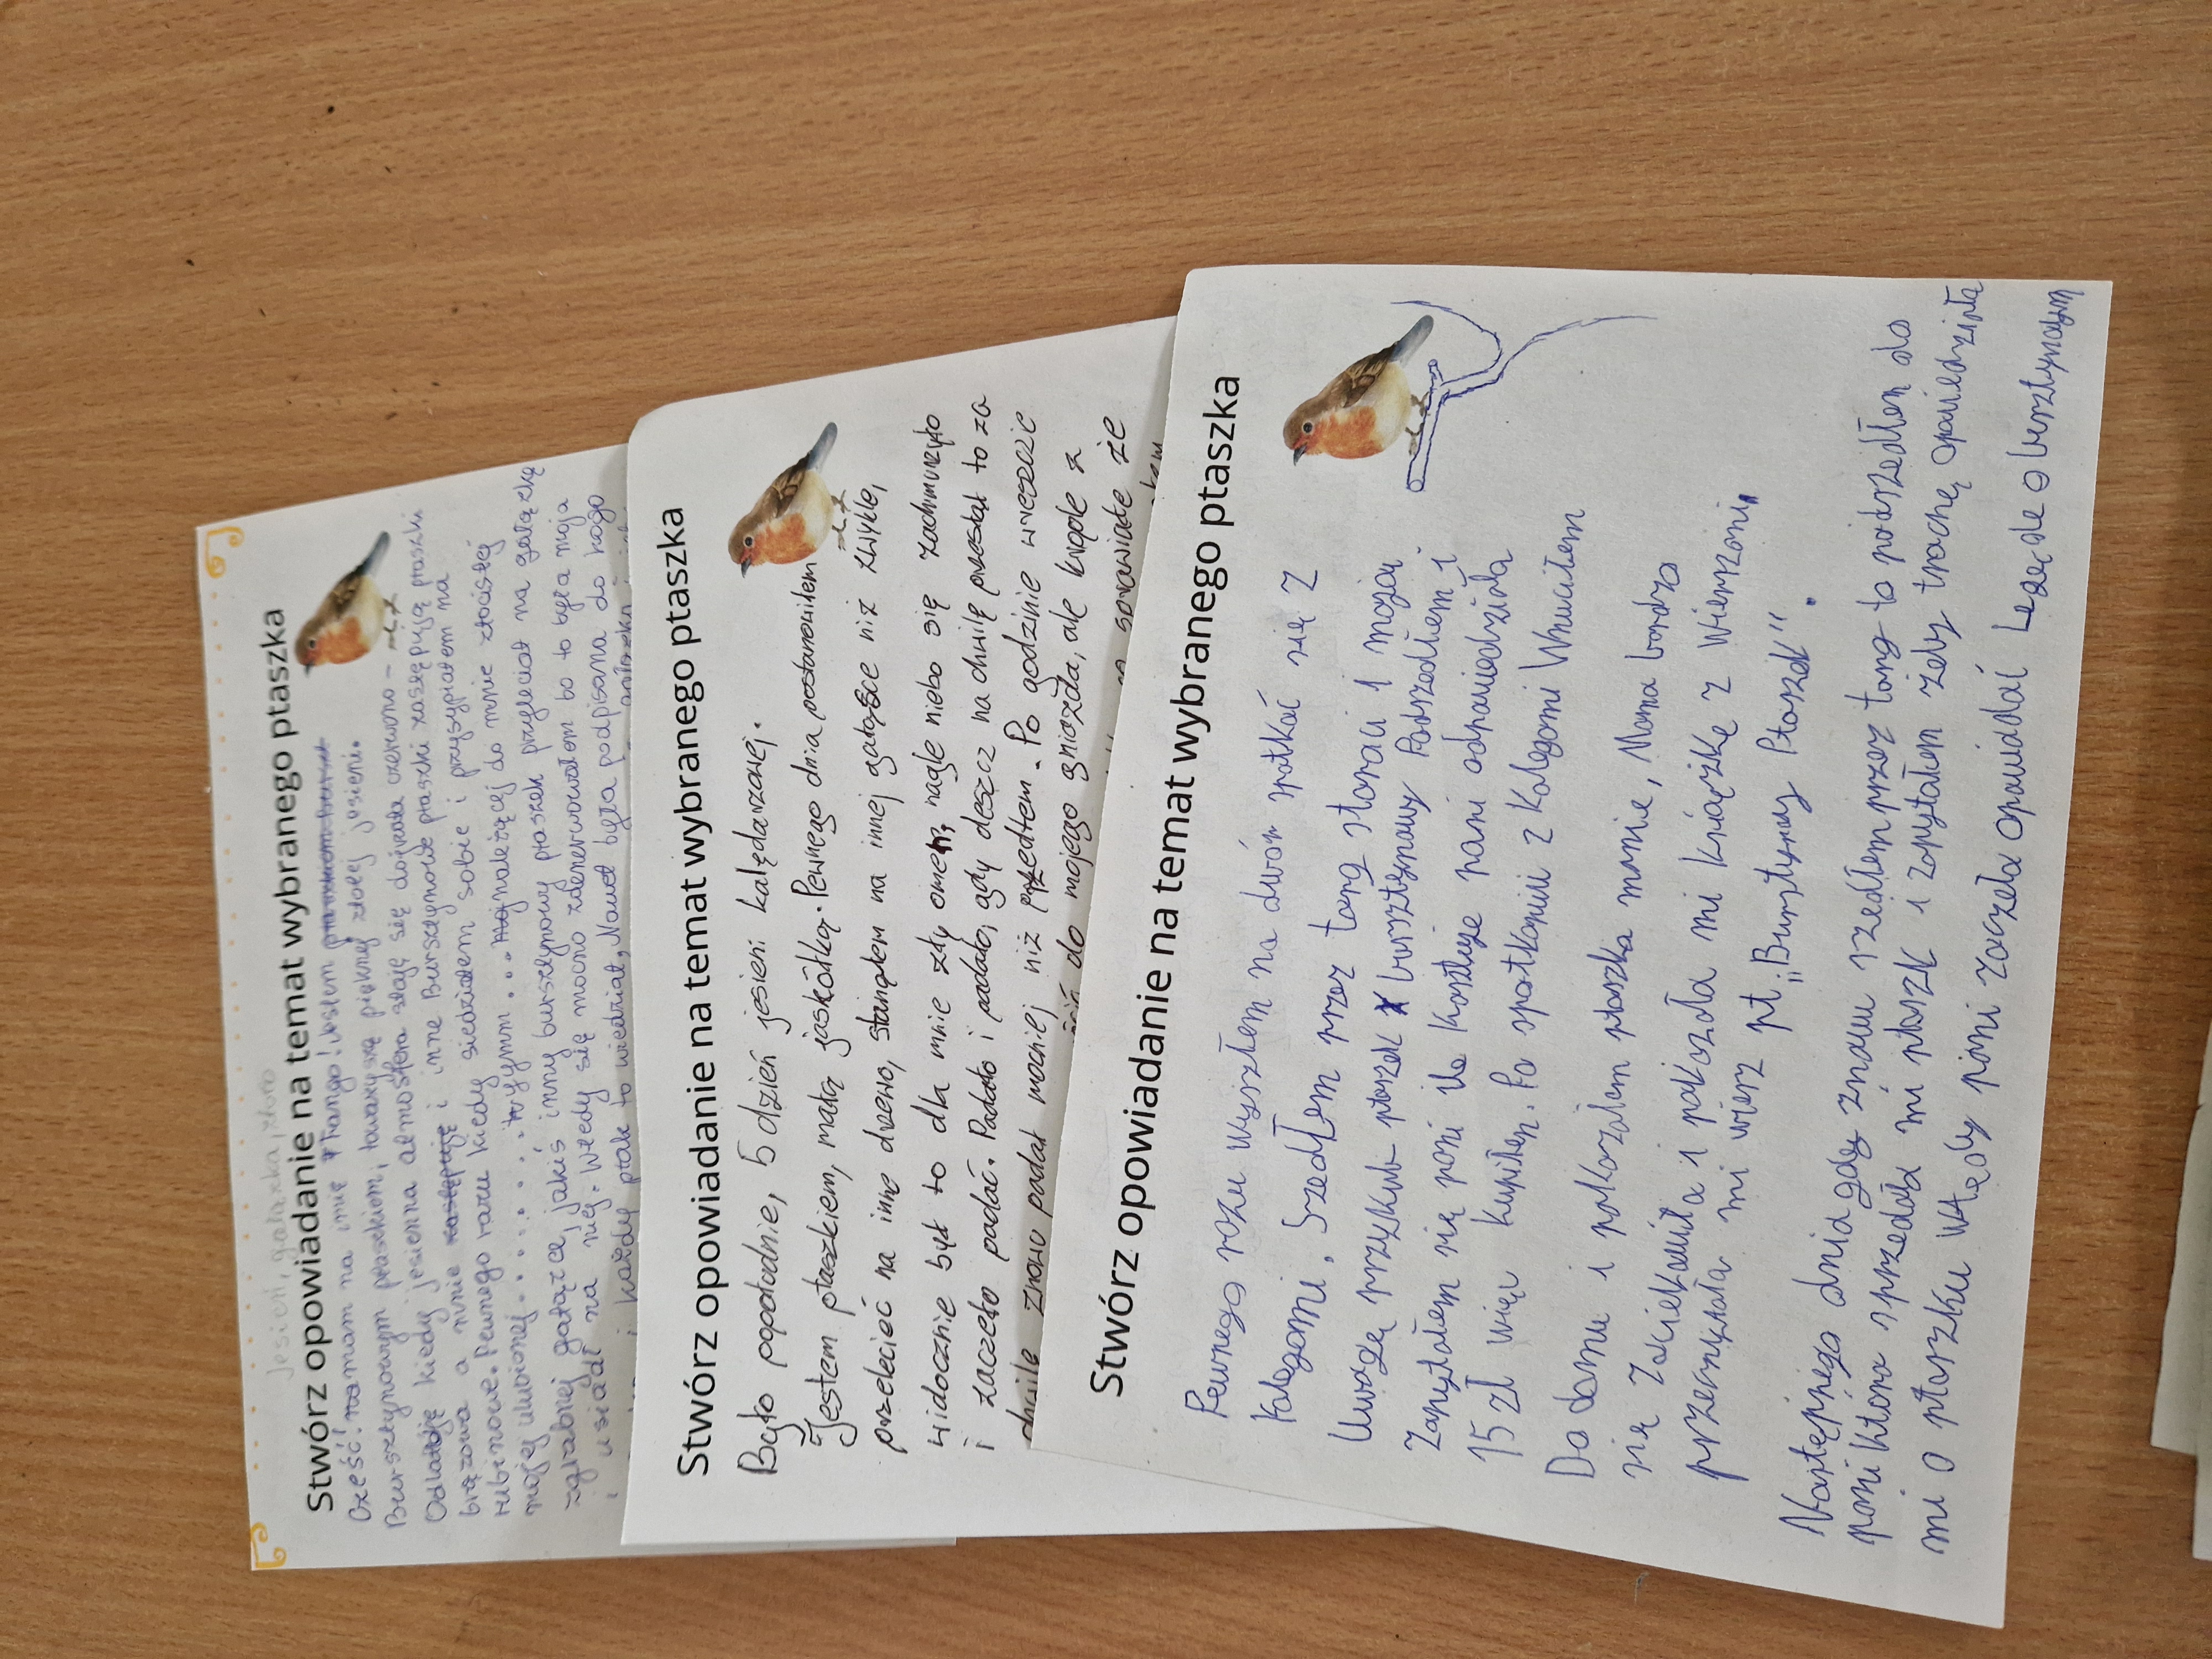 Jesień, gałązka, złoto
Stwórz opowiadanie na temat wybranego ptaszka
Cześć! mam na imię Frango! Jestem
Bursztynowym ptaszkiem, towarzyszę pięknej złotej jesieni.
Odlatuję kiedy jesienna atmosfera staję się dojrzała czerwono-
brązowa a mnie i inne Bursztynowe ptaszki zasępują ptaszki
rubinowe. Pewnego razu kiedy siedziałem sobie i przysypiałem na
mojej ulubionej należącej do mnie złocistej
zgrabnej gałązce jakiś inny bursztynowy ptaszek przyleciał na gałązkę
i usiadł na niej. Wtedy się mocno zdenerwowałem bo to była moja
i każdy ptak to wiedział, Nawet była podpisana do kogo
Stwórz opowiadanie na temat wybranego ptaszka
Było popołudnie, 5 dzień jesieni kalędarzowej.
Jestem ptaszkiem, małą jaskółką. Pewnego dnia postanowiłem
przelecieć na inne drzewo, stanąłem na innej gałąsce niż zwykle,
widocznie był to dla mnie zły omen, nagle niebo się zachmurzyło
i zaczęło padać. Padało i padało, gdy deszcz na chwilę przestał to za
chwilę znowu padał mocniej niż przedtem. Po godzinie wreszcie
do mojego gniazda, ale krople z
sprawiałe że
Stwórz opowiadanie na temat wybranego ptaszka
Pewnego rozu wyszłem na dwór spotkać się z
Kolegomi. Szedłem przez targ staroci i moją
Uwagę przykuł ptaszek bursztynowy Podszedłem i
Zapytałem się pani ile kosztuje pani odpowiedziała
15 zł więc kupiłem. Po spotkaniu z kolegomi Wruciłem
Do domu i pokazałem ptaszka mamie, Mama bardzo
się zaciekawiła i pokazała mi książkę z Wierszami,
przeczytała mi wiersz pt. „Bursztynowy Ptaszek".
Następnego dnia gdy znowu szedłem przez targ to podszedłem do
pani która sprzedała mi ptaszk i zapytałem żeby trochę opowiedziała
mi o ptaszku wtedy pani zaczeła opowiadać Legęde o bursztynowym